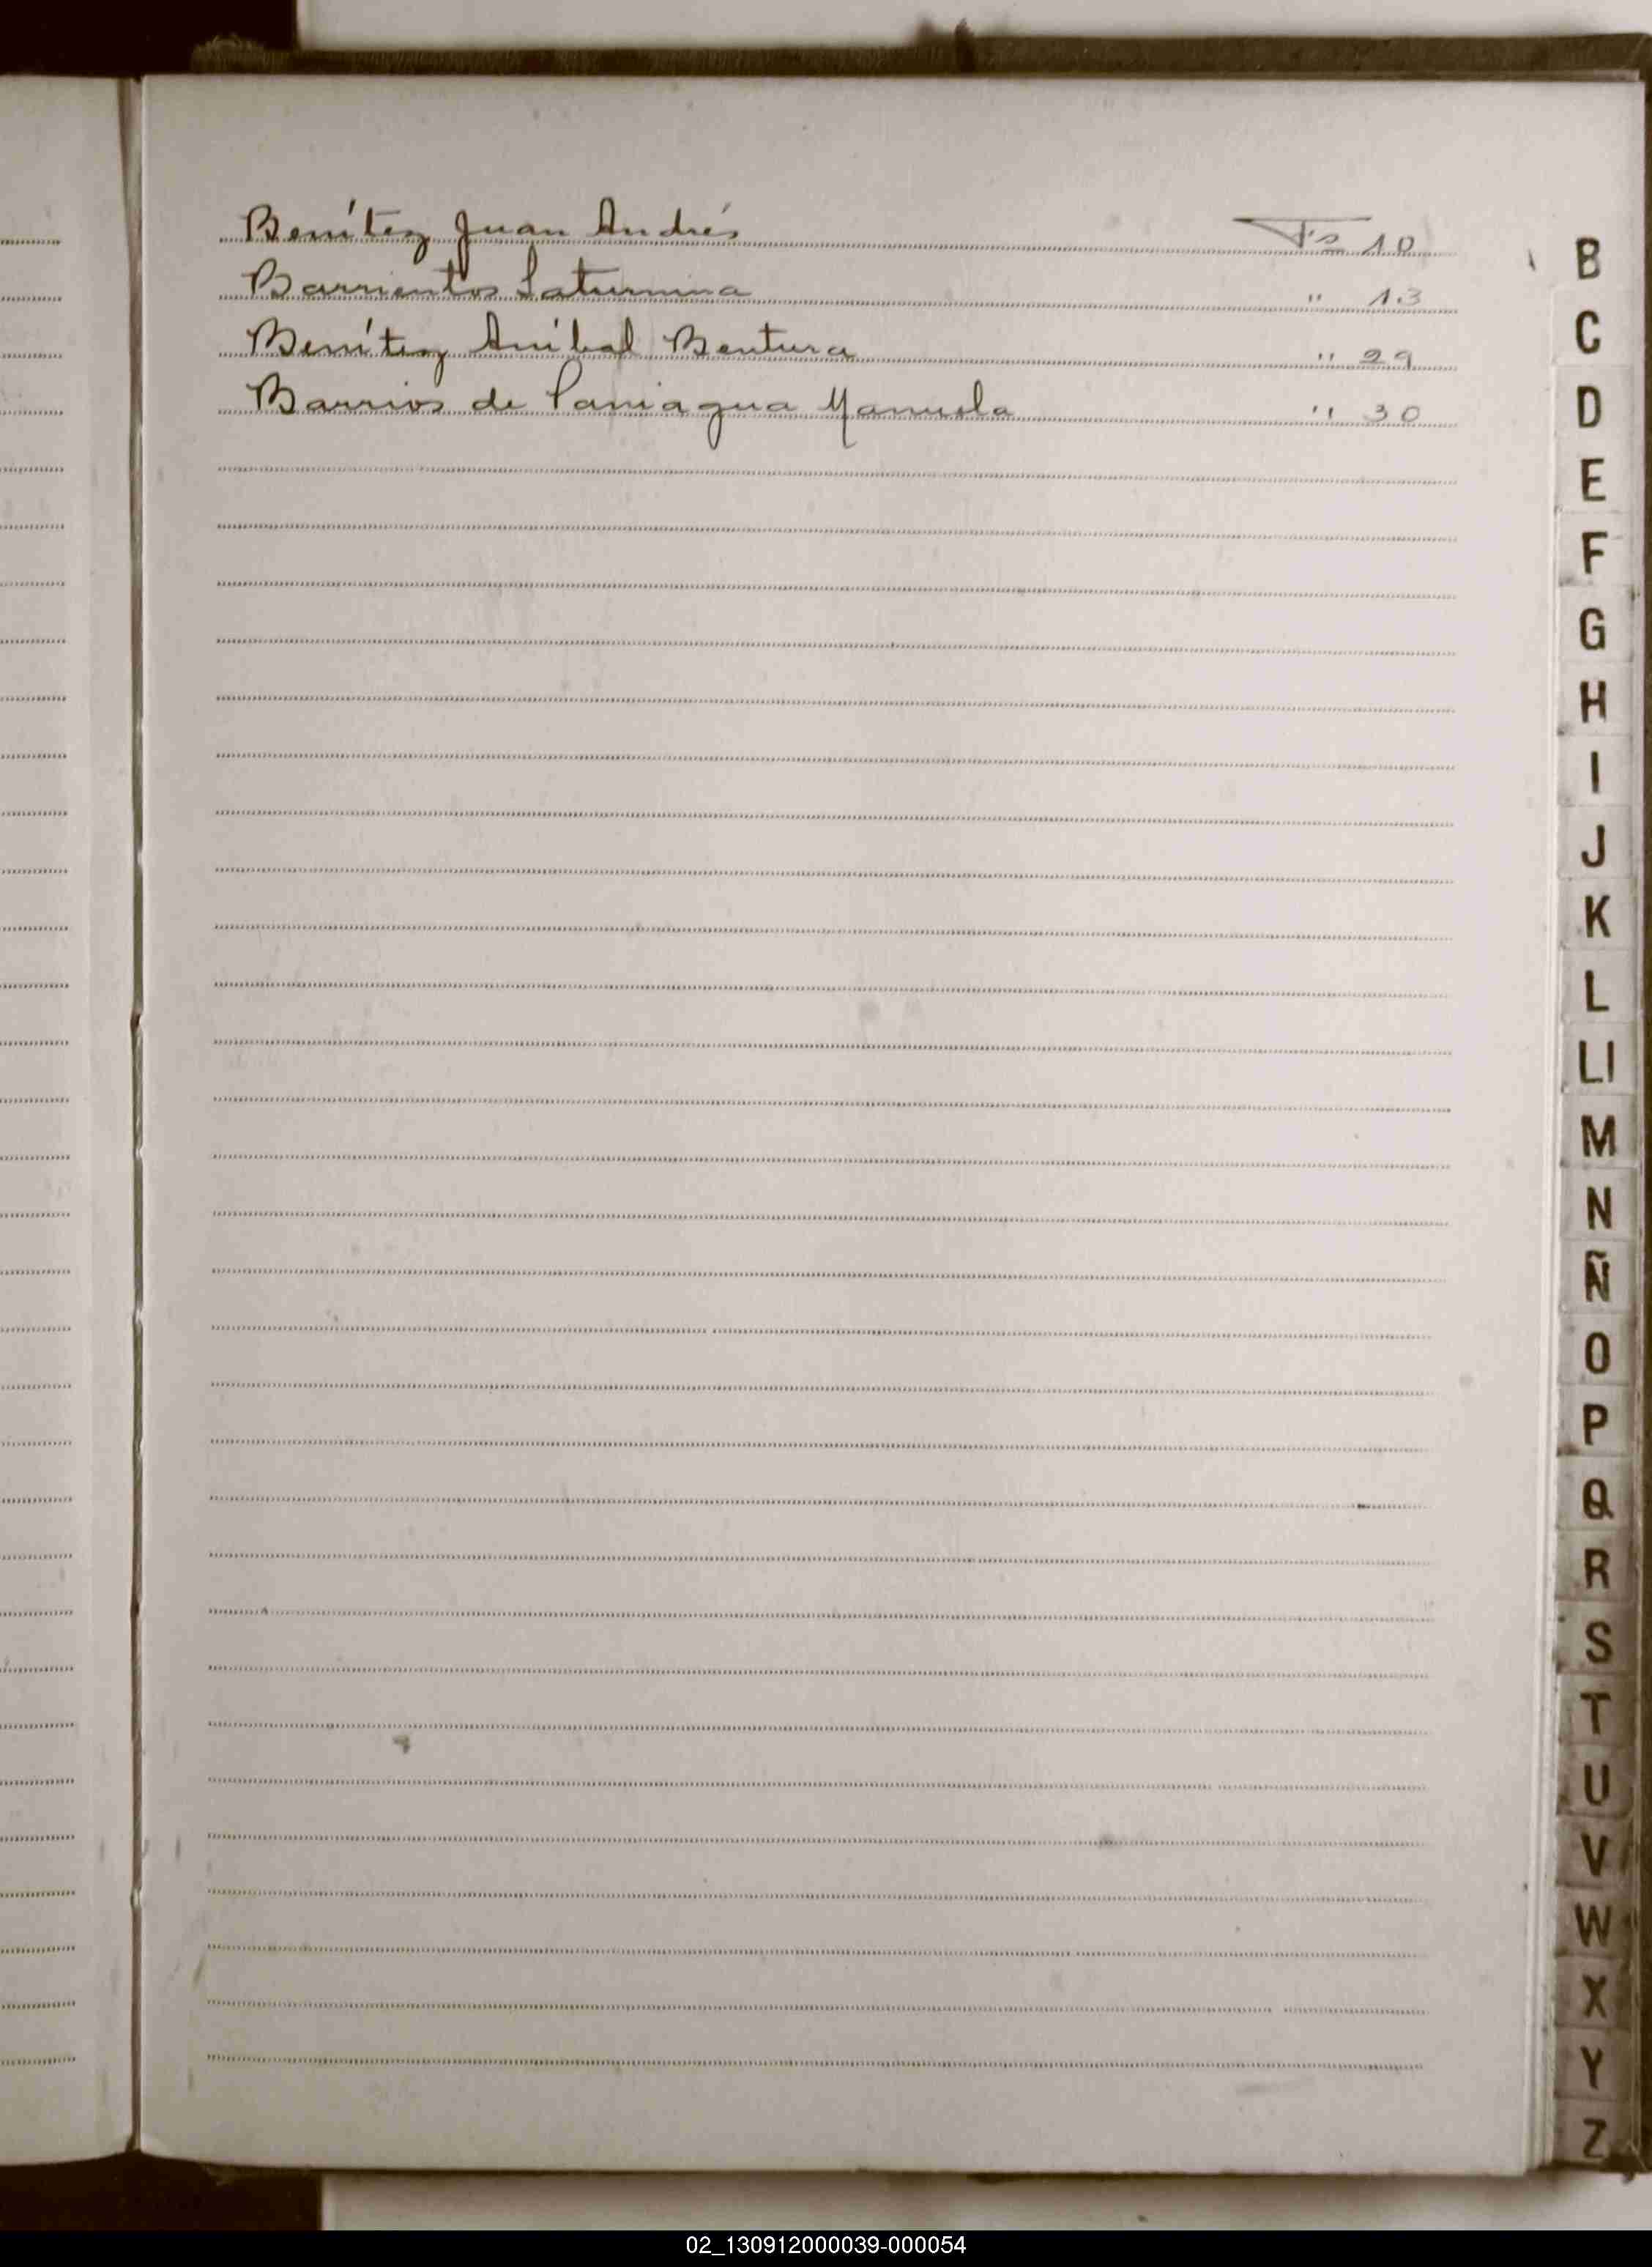 Benítez Juan Andrés Fs 10
Barrientos Saturnina " 13
Benítez Aníbal Bentura " 29
Barrios de Paniagua Manuela " 30
B
C
D
E
F
G
H
I
J
K
L
Ll
M
N
Ñ
O
P
Q
R
S
T
U
V
W
X
Y
Z
02_130912000039-000054